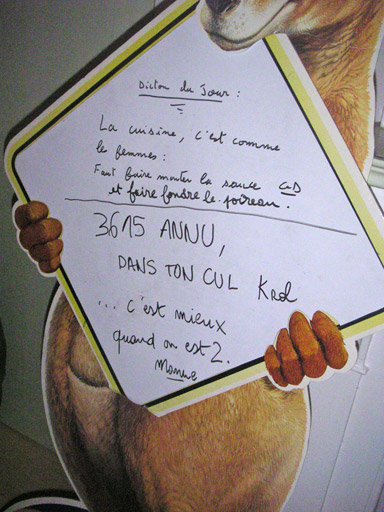 Dicton du Jour :
La cuisine, c'est comme
le femmes :
Faut faire monter la sauce
et faire fondre le poireau.
3615 ANNU,
DANS TON CUL Krol
... c'est mieux
quand on est 2.